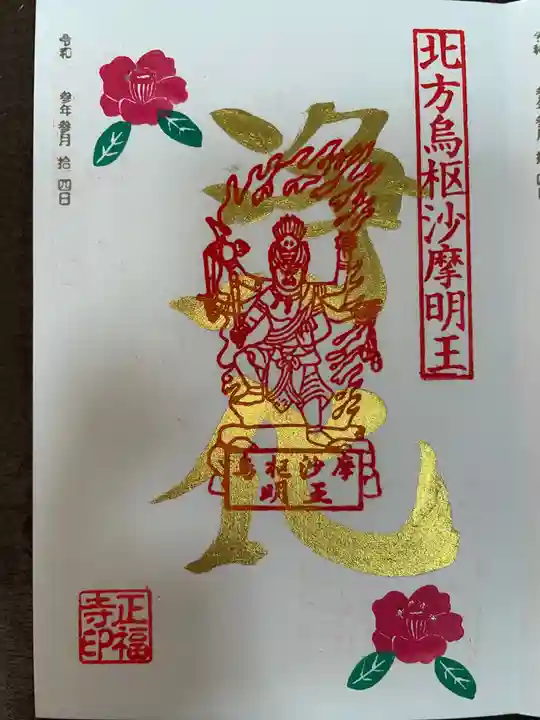 北方烏枢沙摩明王
浄化
烏枢沙摩
明王
令和 参年 参月 拾四日
正福
寺印